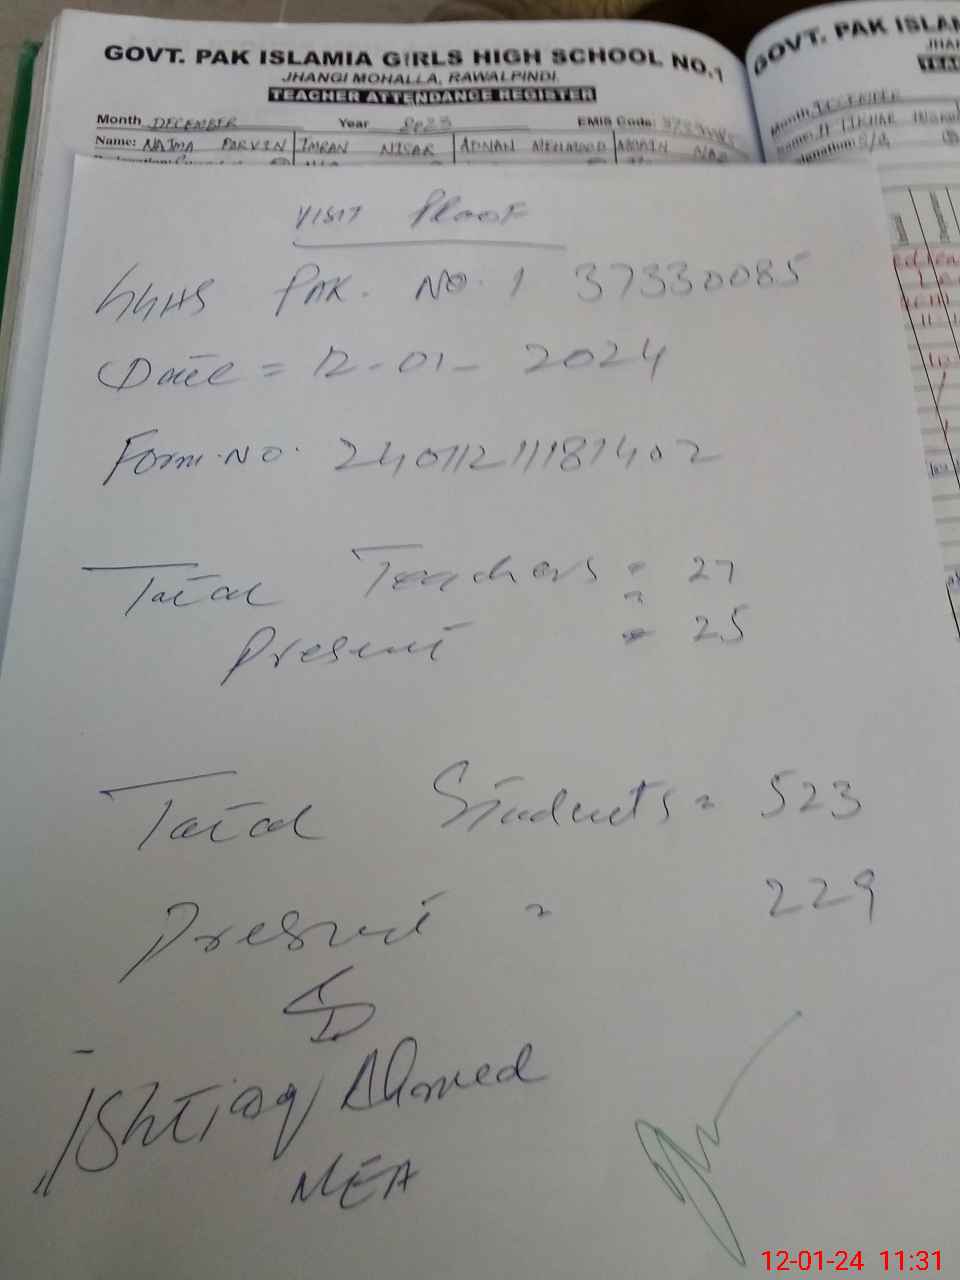 GOVT. PAK ISLAMIA GIRLS HIGH SCHOOL NO.1
JHANGI MOHALLA, RAWALPINDI.
TEACHER ATTENDANCE REGISTER
Month DECEMBER Year 2023 EMIS Code: 37330085
Name: NAJMA PARVIN IMRAN NISAR ADNAN MEHMOOD
GOVT. PAK ISLA
Month DECEMBER
VISIT PROOF
GGHS PAK. NO. 1 37330085
Date = 12-01-2024
Form.No. 24011211181402
Total Teachers = 27
Present = 25
Total Students = 523
Present = 229
Ishtiaq Ahmed
MEA
12-01-24 11:31